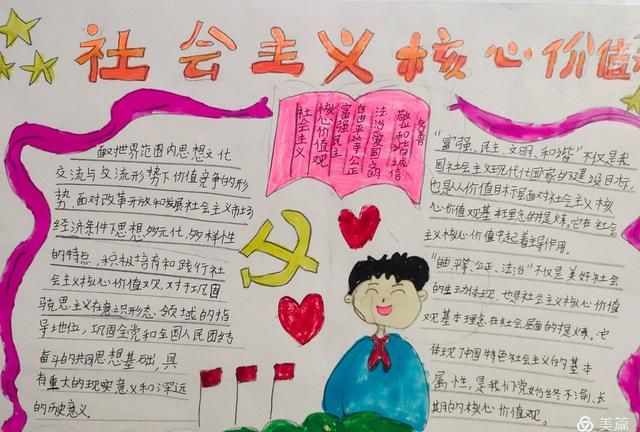 社会主义核心价值
社会主义
核心价值观
富强民主
自由平等公正
法治爱国文明
敬业和谐诚信
友善
面对世界范围内思想文化
交流与交流形势下价值竞争的形
势，面对改革开放和发展社会主义市场
经济条件下思想多元化，多样性
的特点，积极培育和践行社
会主义核心价值观，对于巩固
思主义在意识形态、领域的指
导地位，巩固全党和全国人民团结
奋斗的共同思想基础，具
有重大的现实意义和深远
的历史意义。
"富强、民主、文明、和谐"不仅是我
国社会主义现代化国家的建设目标，
也是从价值目标层面对社会主义核
心价值观基本理念的提炼。它在社会
主义核心价值中起着主导作用。
"自由、平等、公正、法治"不仅是美好社会
的生动体现，也是社会主义核心价值
观基本理念在社会层面的提炼。它
体现了中国特色社会主义的基本
属性，是我们党始终不渝、长
期的核心价值观。
美篇